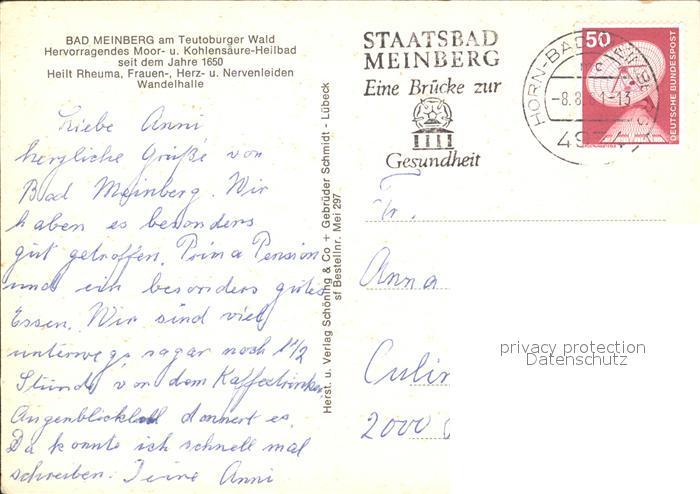 BAD MEINBERG am Teutoburger Wald
Hervorragendes Moor- u. Kohlensäure-Heilbad
seit dem Jahre 1650
Heilt Rheuma, Frauen-, Herz- u. Nervenleiden
Wandelhalle
Liebe Anni
herzliche Grüße von
Bad Meinberg. Wir
haben es besonders
gut getroffen. Prima Pension
und ein besonders gutes
Essen. Wir sind viel
unterwegs, sogar noch 1 1/2
Stunde, vor dem Kaffeetrinken
Augenblicklich donnert es.
Da konnte ich schnell mal
schreiben. Deine Anni
Herst. u. Verlag Schöning & Co + Gebrüder Schmidt - Lübeck
sf Bestellnr. Mei 297
STAATSBAD
MEINBERG
Eine Brücke zur
Gesundheit
HORN-BAD
-8.8
-13
50
DEUTSCHE BUNDESPOST
Fr.
Anna
2000
privacy protection
Datenschutz